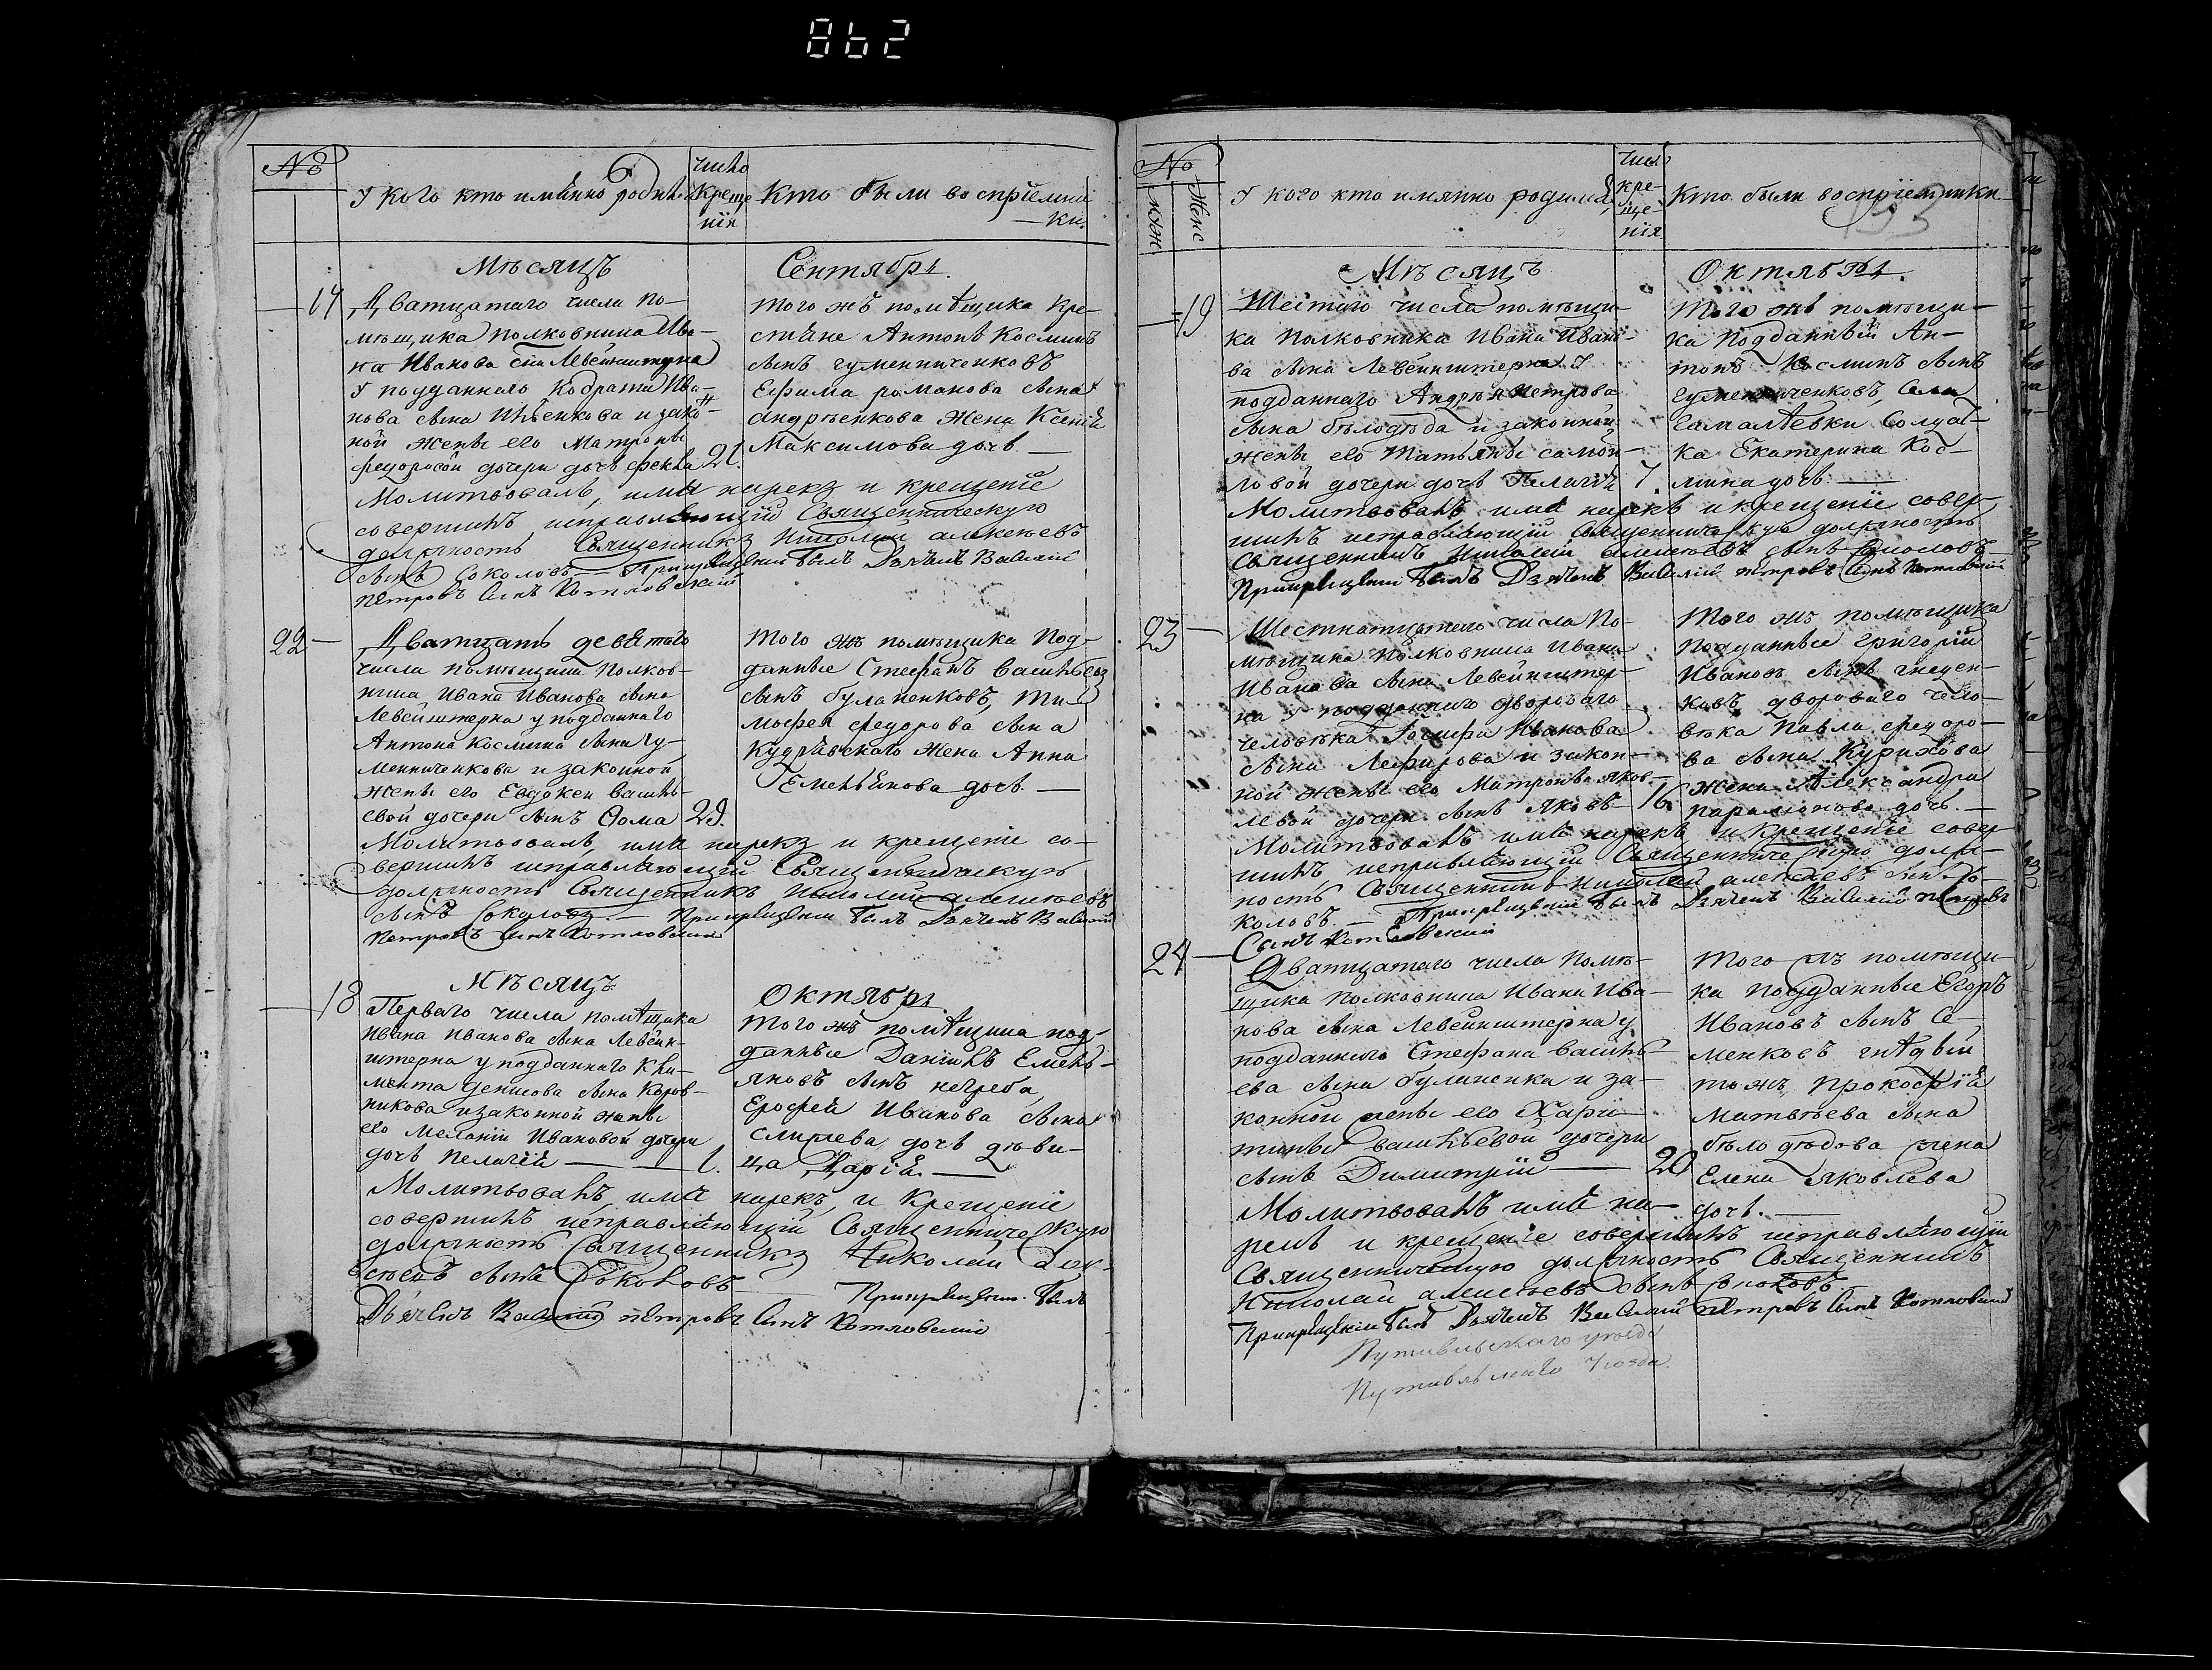 862
№
У кого кто имянно родился
число крещенія
Кто были воспріемники
Мѣсяцъ Сентябрь
17 Дватцатаго числа по-
мѣщика полковника Ива-
на Иванова сна Левенштерна
у подданнаго Кодрати Ива-
нова сына и закон-
ной жены его Матроны
Федоровой дочери дочь Фекла 21.
того жъ помѣщика кре-
стьяне Антонъ Косминъ
сынъ гуменниченковъ
Ефима романова сына
андрѣенкова жена Ксенія
Максимова дочь. —
Молитвовалъ, имя нарекъ и крещеніе
совершилъ исправляющій Священническую
должность Священникъ Николай алексѣевъ
сынъ Соколовъ — При крещеніи былъ Дьячекъ Василій
Петровъ Сынъ Котловскій
22 — Дватцать девятаго
числа помѣщика Полков-
ника Ивана Иванова сына
Левенштерна у подданнаго
Антона Космина сына гу-
менниченкова и законной
жены его Евдокеи василь-
евой дочери сынъ Фома 29.
того жъ помѣщика под-
данные Стефанъ васильевъ
сынъ буланенковъ, Ти-
мофея федорова сына
Кудрявскаго жена Анна
Емельянова дочь. —
Молитвовалъ, имя нарекъ и крещеніе со-
вершилъ исправляющій Священническую
должность Священникъ Николай алексѣевъ
сынъ Соколовъ. — При крещеніи былъ Дьячекъ Василій
Петровъ Сынъ Котловскій
Мѣсяцъ Октябрь
18 Перваго числа помѣщика
Ивана Иванова сына Левен-
штерна у подданнаго Кли-
мента денисова сына Коров-
никова и законной жены
его Меланіи Ивановой дочери
дочь Пелагія — 1.
того жъ помѣщика под-
данные Даніилъ Емель-
яновъ сынъ негреба,
Ерофея Иванова сына
дочь дѣви-
ца Дарія. —
Молитвовалъ, имя нарекъ, и крещеніе
совершилъ исправляющій Священническую
должность Священникъ Николай Алек-
сѣевъ сынъ Соколовъ При крещеніи былъ
Дьячекъ Василій петровъ Сынъ Котловскій
№
муж
женс
У кого кто имянно родился
число крещенія
Кто были воспріемники
193
Мѣсяцъ Октябрь.
19 Шестаго числа помѣщи-
ка Полковника Ивана Ивано-
ва сына Левенштерна у
подданнаго Андрея петрова
сына бѣлодѣда и законной
жены его Татьяны самой-
ловой дочери дочь Пелагія 7.
Того жъ помѣщи-
ка Подданный Ан-
тонъ Косминъ сынъ
Гуменниченковъ, Села
Солдат-
ка Екатерина Кос-
мина дочь. —
Молитвовалъ имя нарекъ и крещеніе совер-
шилъ исправляющій Священническую должность
Священникъ Николай алексѣевъ сынъ Соколовъ
При крещеніи былъ Дьячекъ Василій петровъ Сынъ Котловскій
23 — Шестнатцатаго числа По-
мѣщика Полковника Ивана
Иванова сына Левенштер-
на у подданнаго двороваго
человѣка Іосифа Иванова
сына и закон-
ной жены его Матроны яков-
левой дочери сынъ Яковъ 16.
Того жъ помѣщика
Подданные Григорій
Ивановъ сынъ
двороваго чело-
вѣка Павла федоро-
ва сына Курихова
жена Александра
парамонова дочь. —
Молитвовалъ имя нарекъ и крещеніе совер-
шилъ исправляющій Священническую долж-
ность Священникъ Николай алексѣевъ сынъ Со-
коловъ — При крещеніи былъ Дьячекъ Василій Петровъ
Сынъ Котловскій
24 — Дватцатаго числа помѣ-
щика полковника Ивана Ива-
нова сына Левенштерна у
подданнаго Стефана василь-
ева сына буланенка и за-
конной жены его Хари-
тины васильевой дочери
сынъ Димитрій — 20
Того жъ помѣщи-
ка Подданные Егоръ
Ивановъ сынъ Се-
менковъ
Прокофія
Матвѣева сына
бѣлодѣдова жена
Елена яковлева
дочь. —
Молитвовалъ имя на-
рекъ и крещеніе совершилъ исправляющій
Священническую должность Священникъ
Николай алексѣевъ сынъ Соколовъ
При крещеніи былъ Дьячекъ Василій Петровъ Сынъ Котловскій
Путивльскаго уѣзда
Путивльскаго уѣзда